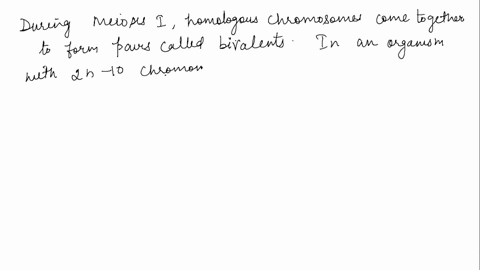 During Meiosis I, homologous chromosomes come together
to form pairs called bivalents. In an organism
with 2n -10 chromos